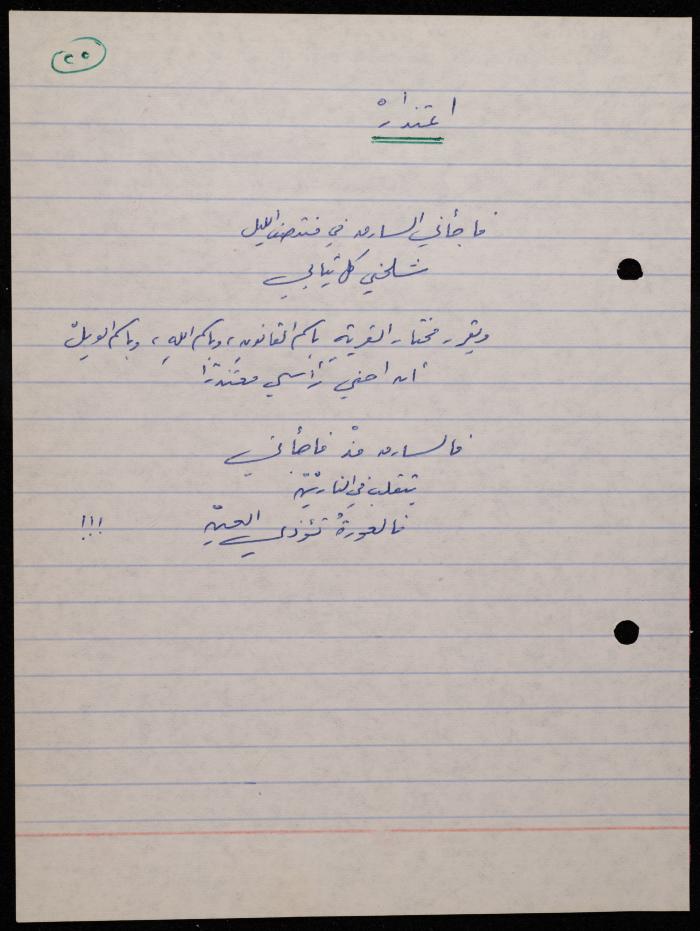 ٢٥
اعتذارْ
فاجأني السارق في منتصف الليل
شلحني كل ثيابي
ويقرر مختار القرية باسم القانون، وباسم اللهِ، وباسم الويلْ
أن احني رأسي معتذرًا
فالسارق مذْ فاجأني
يتقلب في النارينْ
فالعورةُ تؤذي العينْ !!!